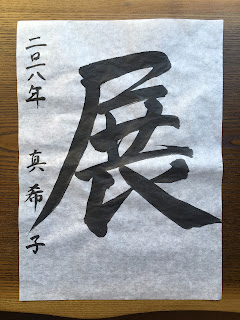 展
二〇一八年 真希子